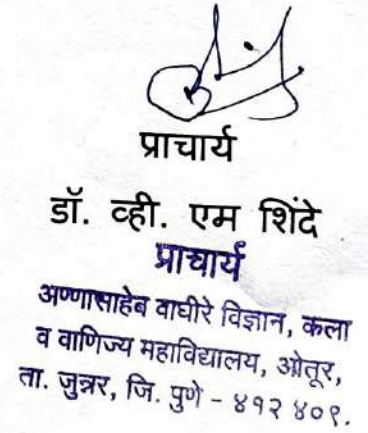 प्राचार्य
डॉ. व्ही. एम शिंदे
प्राचार्य
अण्णासाहेब वाघीरे विज्ञान, कला
व वाणिज्य महाविद्यालय, ओतूर,
ता. जुन्नर, जि. पुणे - ४१२ ४०९.